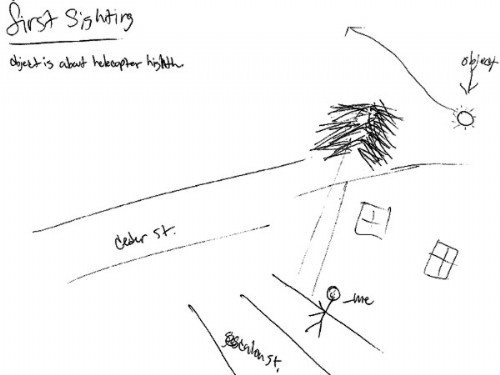 First Sighting
object is about helecopter highth.
object
cedar st.
me
st.